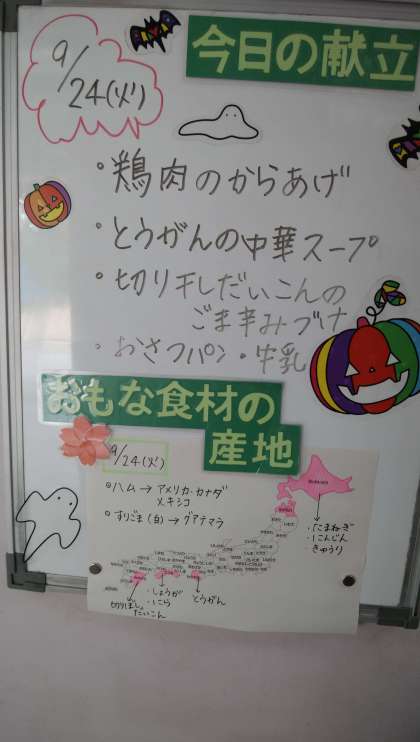 9/24(火)
今日の献立
・鶏肉のからあげ
・とうがんの中華スープ
・切り干しだいこんの
ごま辛みづけ
・おさつパン・牛乳
おもな食材の
産地
9/24(火)
・ハム→アメリカ・カナダ
メキシコ
・すりごま(白)→グアテマラ
・たまねぎ
・にんじん
きゅうり
・しょうが
・にら
とうがん
切りぼし
だいこん